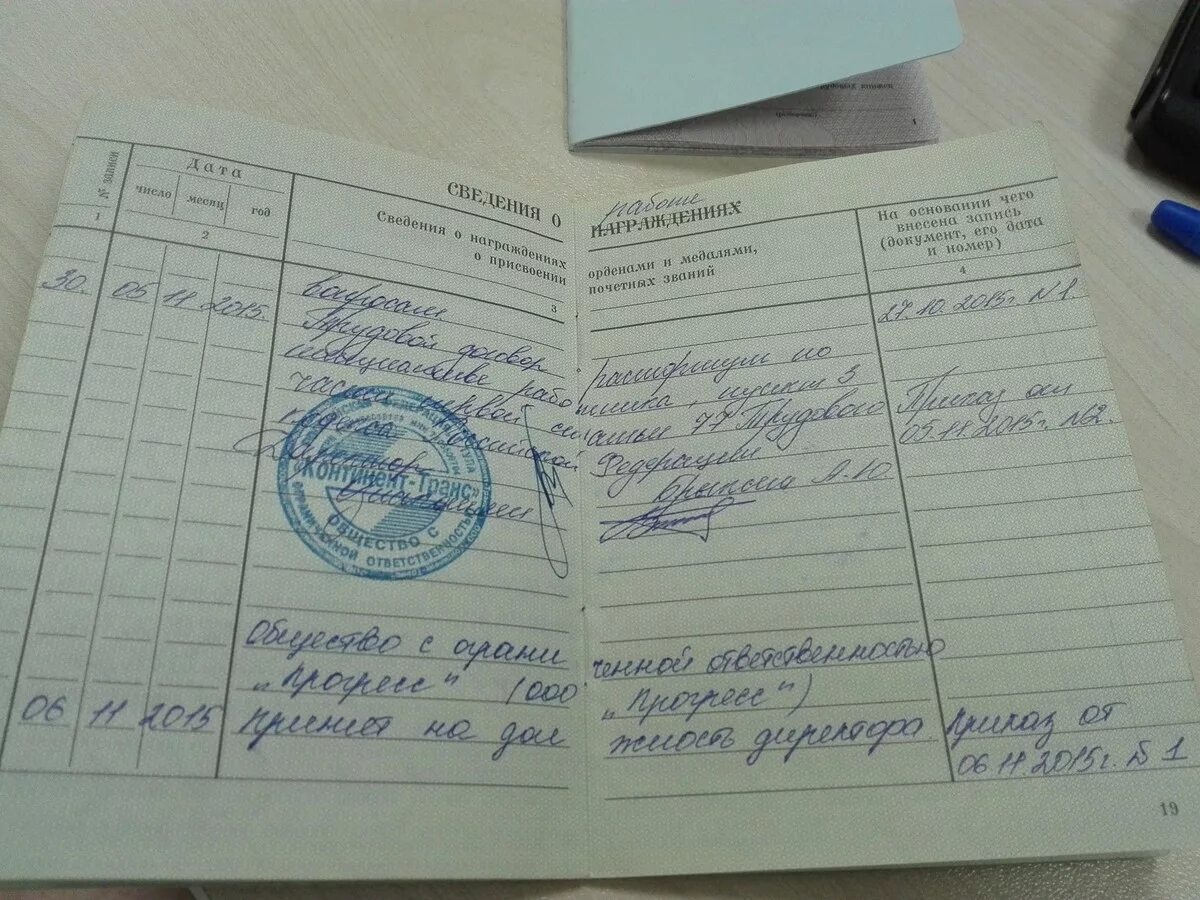 СВЕДЕНИЯ О работе НАГРАЖДЕНИЯХ
№ записи
Дата
число месяц год
Сведения о награждениях орденами и медалями,
о присвоении почетных званий
На основании чего
внесена запись
(документ, его дата
и номер)
1 2 3 4
вопросам 27.10.2015г. №1.
30. 05 11 2015. Трудовой договор расторгнут по
инициативе работника, пункт 3 Приказ от
часть первой статьи 77 Трудового 05.11.2015г. №2.
кодекса Российской Федерации
Директор Брыкина А.Ю.
"Континент-Транс"
ОБЩЕСТВО С
ОГРАНИЧЕННОЙ ОТВЕТСТВЕННОСТЬЮ
Общество с ограниченной ответственностью
„Прогресс" (ООО „Прогресс")
06 11 2015 принят на должность директора Приказ от
06.11.2015г. № 1
19